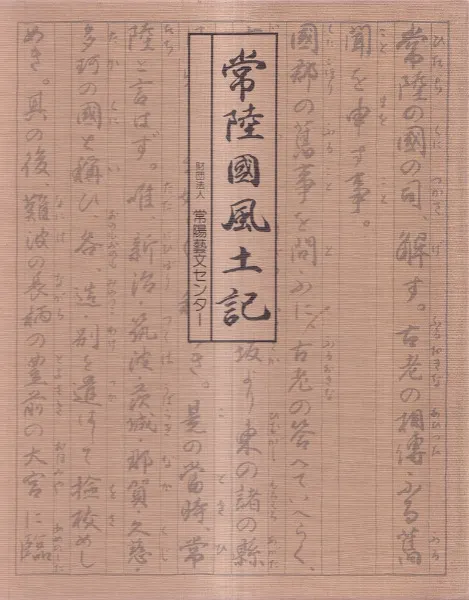 常陸國風土記
財団法人 常陽藝文センター
常陸の國の司、解す。古老の相傳ふる舊
聞を申す事。
國郡の舊事を問ふに、古老の答へていへらく、
坂より東の諸の縣
き。是の當時、常
陸と言はす。唯、新治・筑波・茨城・那賀・久慈・
多珂の國と稱ひ、各、造・別を遣はして檢校めし
めき。其の後、難波の長柄の豊前の大宮に臨